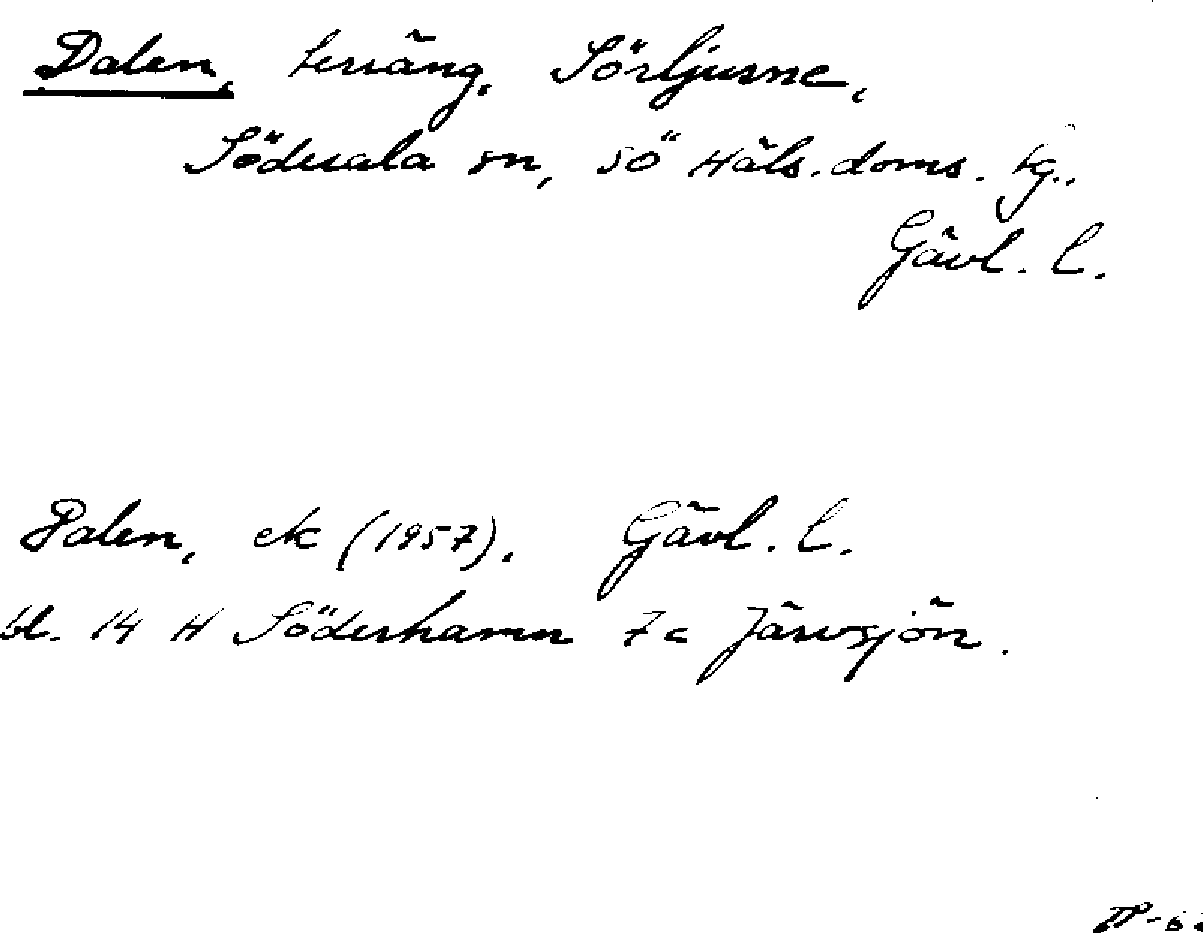 Dalen, terräng, Sörljusne,
Söderala sn, sö Häls. doms. tg.,
Gävl. l.
Dalen, ek (1957), Gävl. l.
bl. 14 H Söderhamn 7c Järvsjön.